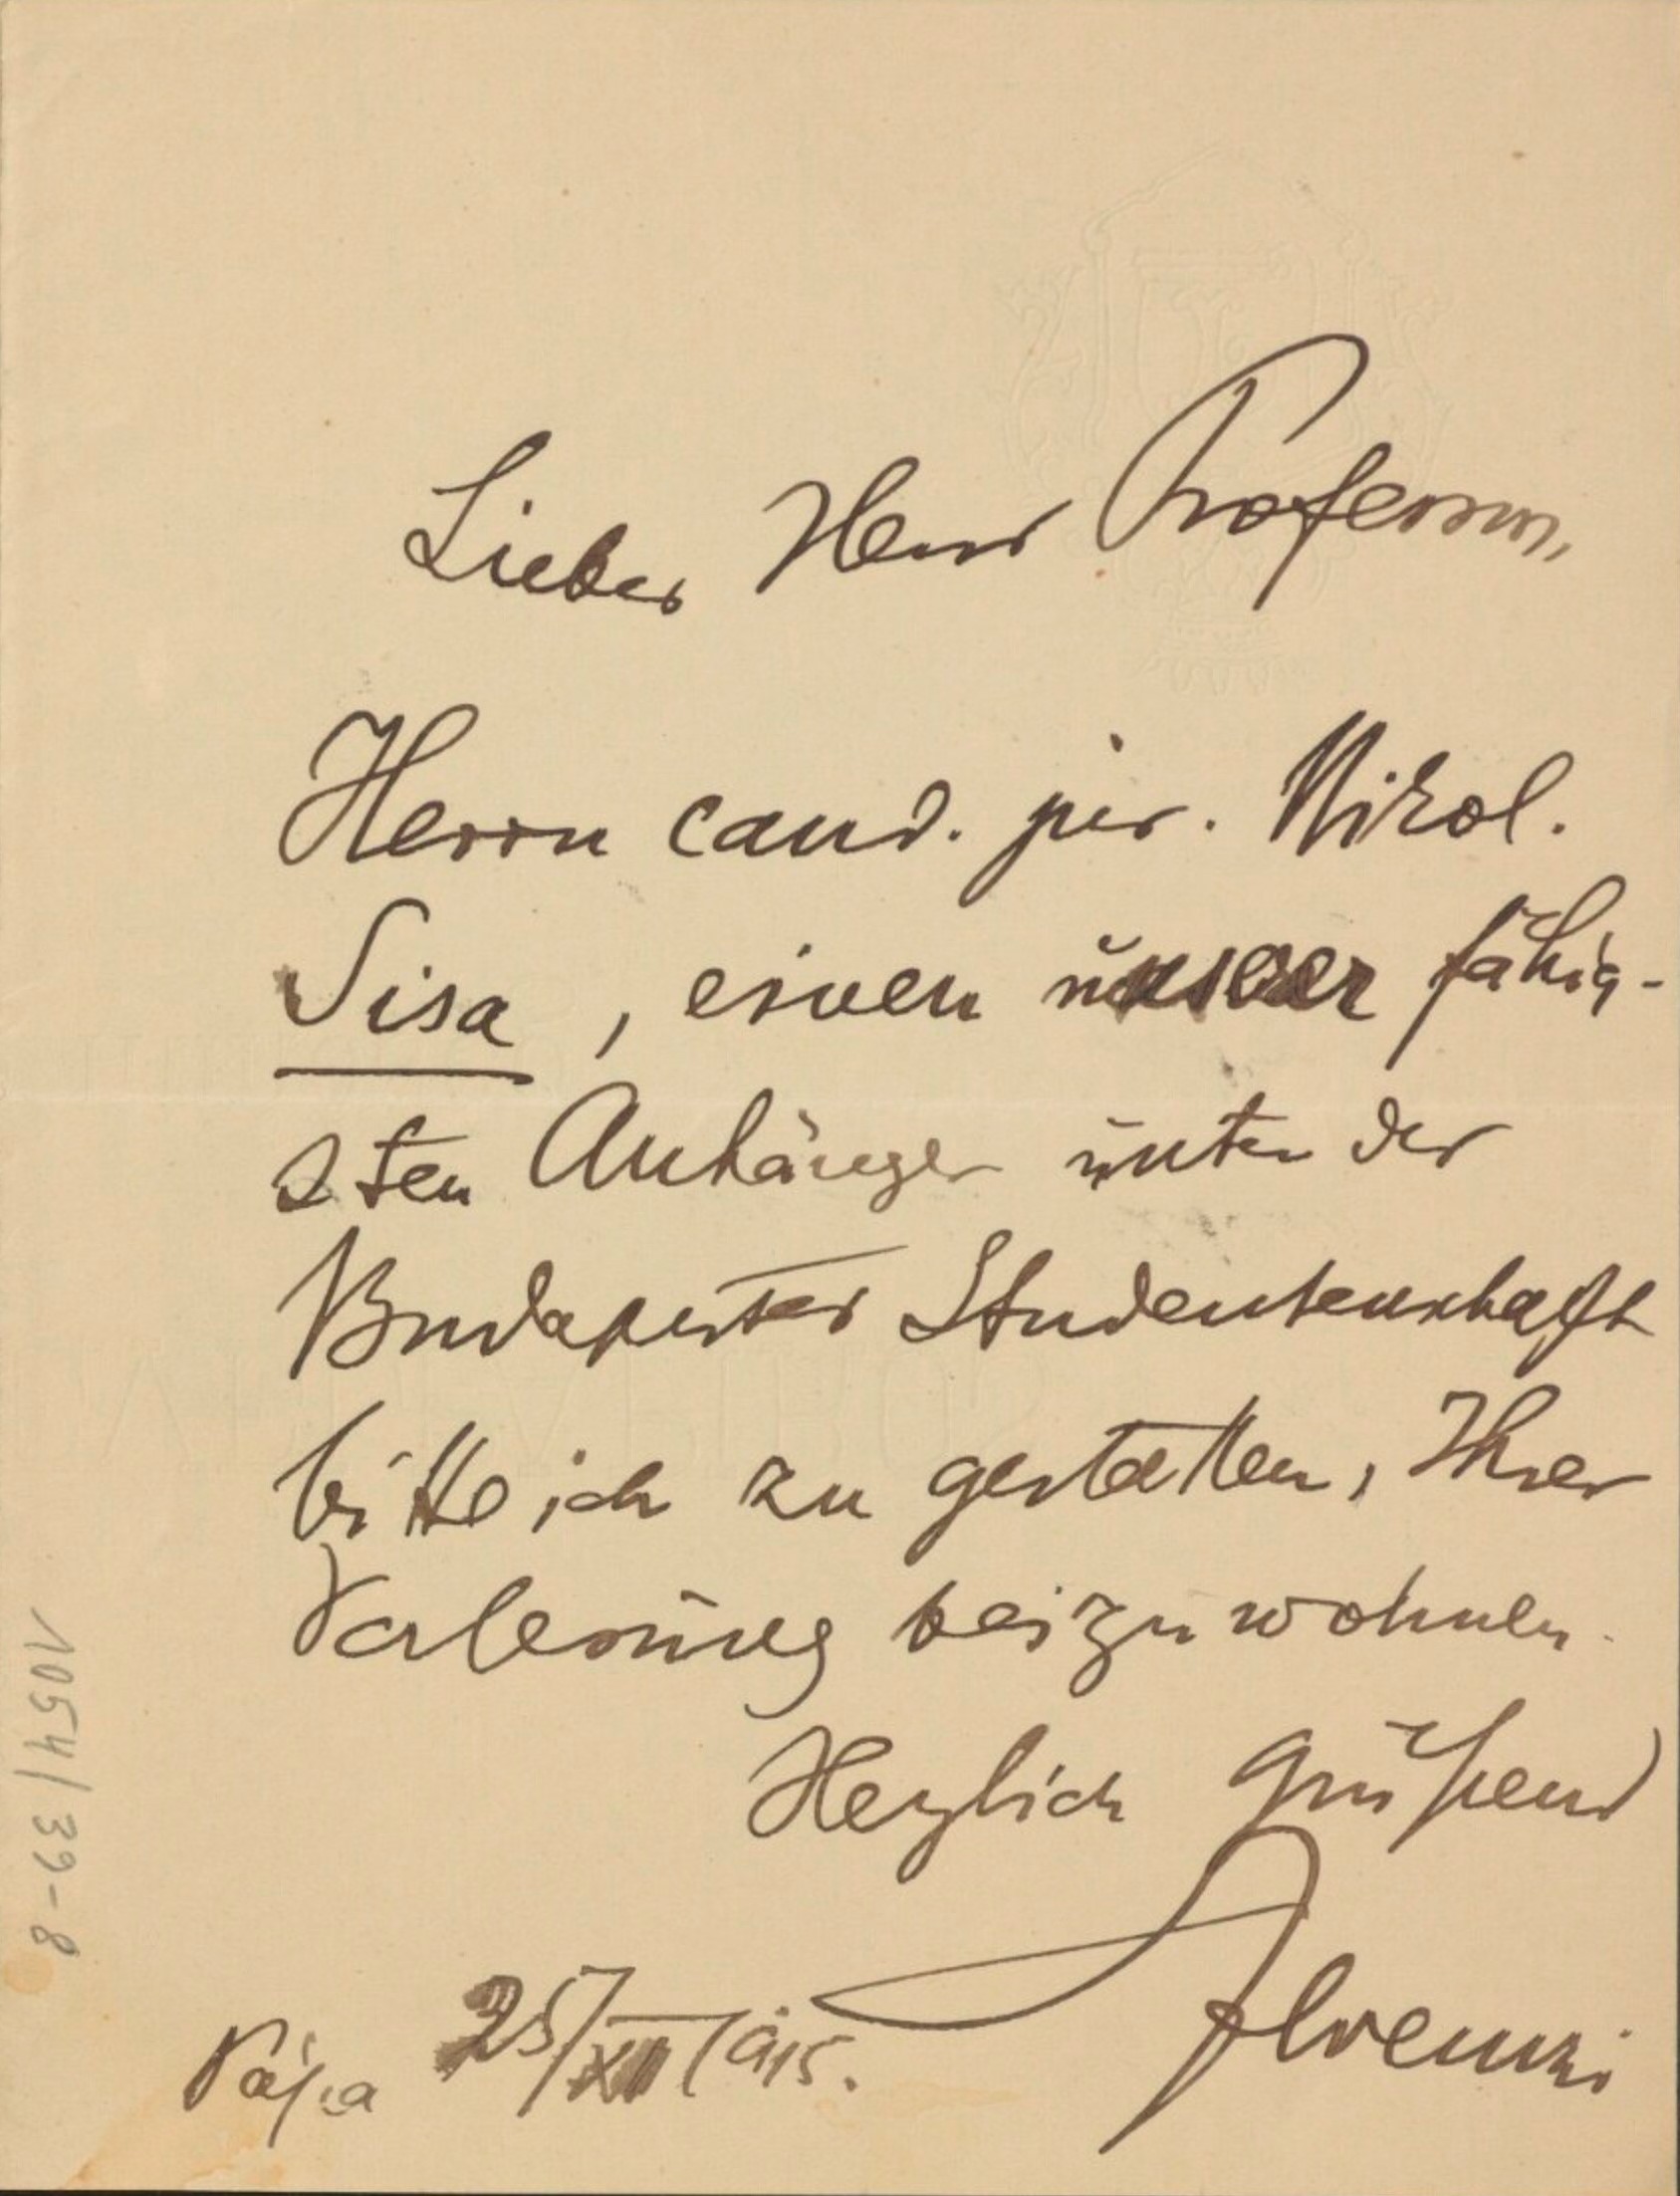 Lieber Herr Professor,
Herrn cand. jur. Nikol.
Sisa, einen unserer fähig-
sten Anhänger unter der
Budapester Studentenschaft
bitte ich zu gestatten, Ihrer
Vorlesung beizuwohnen.
Herzlich grüßend
Ferenczi
Pápa 25/XII 1915.
1054/39-8